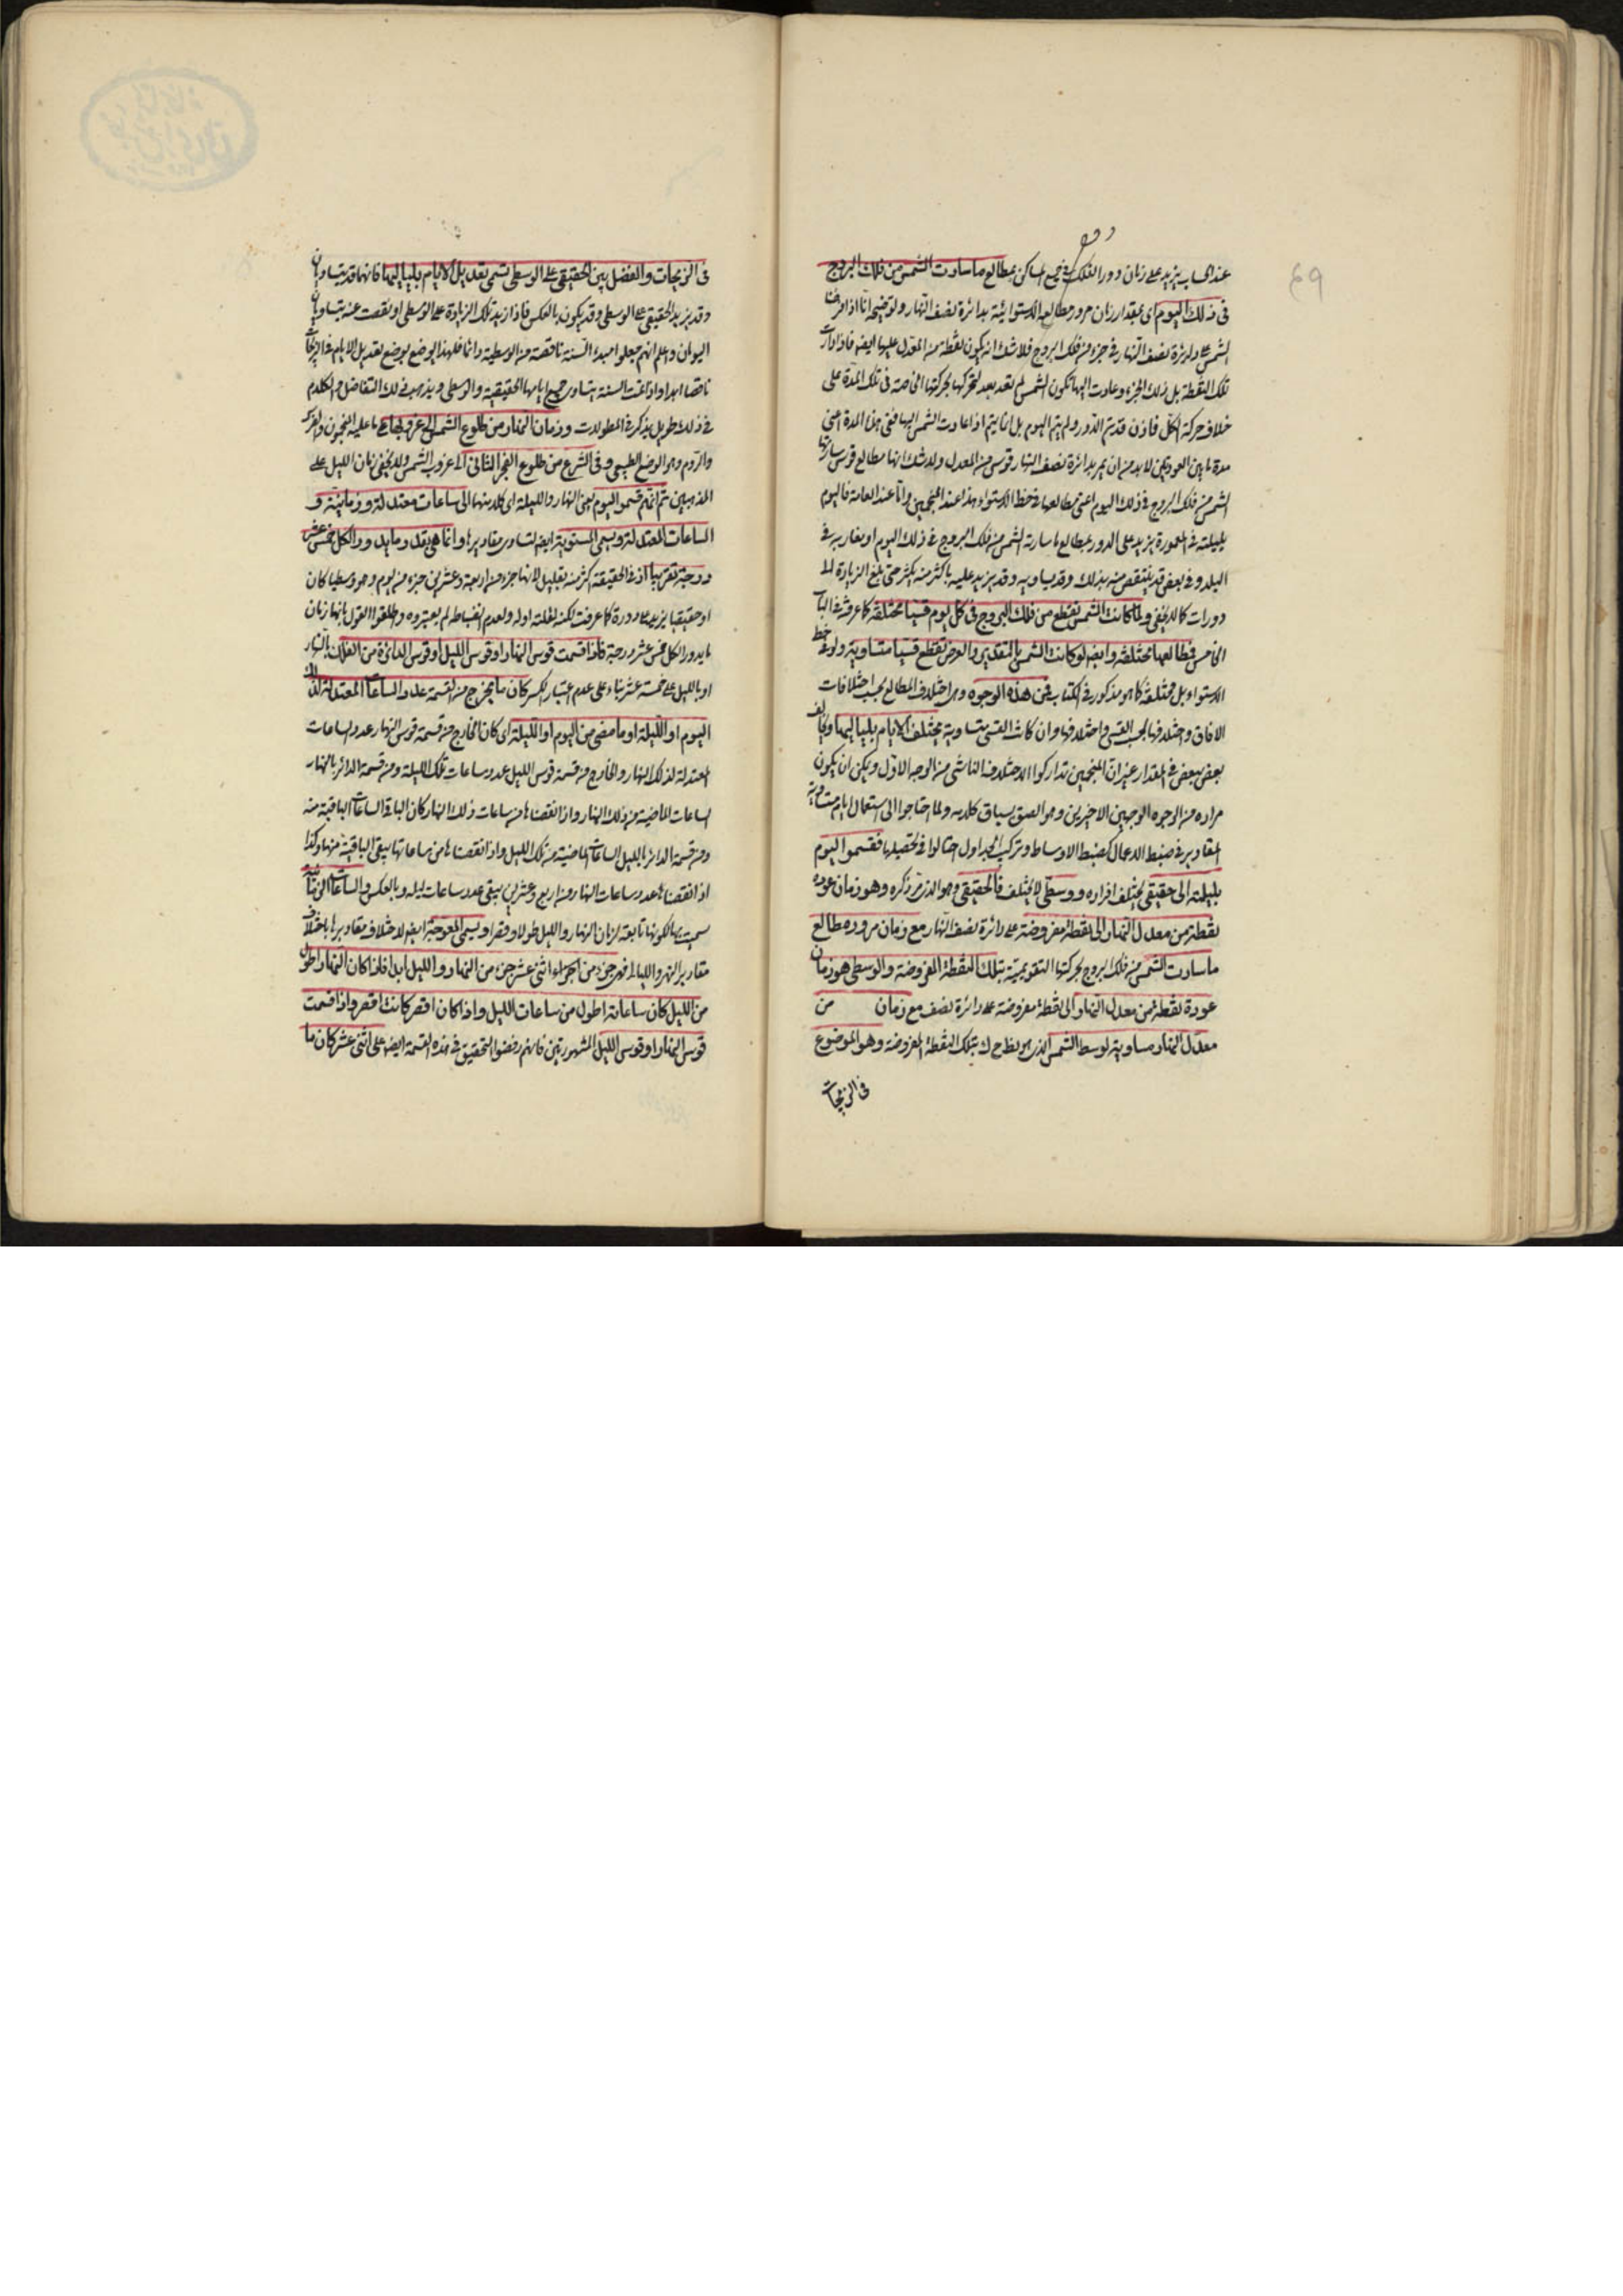 عند الحساب يزيد على زمان دور الفلك في جميع المساكن بمطالع ما سارت الشمس من فلك البروج
في ذلك اليوم اى بمقدار زمان مرور مطالعه الاستوائية بدائرة نصف النهار ولتوضيحه انا اذا فرضنا
الشمس على دائرة نصف النهار في جزء من فلك البروج فلا شك انه يكون نقطة من المعدل عليها ايضا فاذا دارت
تلك النقطة بل ذلك الجزء وعادت اليها تكون الشمس لم تعد بعد لتحركها بحركتها الخاصة في تلك المدة على
خلاف حركة الكل فاذن قد تم الدور ولم يتم اليوم بل انما يتم اذا عادت الشمس اليها ففي هذا المدة اعنى
مدة ما بين العودتين لا بد من ان يمر بدائرة نصف النهار قوس من المعدل ولا شك انها مطالع قوس سارتها
الشمس من فلك البروج في ذلك اليوم اعنى مطالعها في خط الاستواء هذا عند المنجمين واما عند العامة فاليوم
بليلته في المعمورة يزيد على الدور بمطالع ما سارته الشمس من فلك البروج في ذلك اليوم او بمغاربه في
البلد وفي بعض قد ينتقص منه بذلك وقد يساويه وقد يزيد عليه باكثر منه بكثير حتى يبلغ الزيادة الى
دورات كما لا يخفى ولما كانت الشمس تقطع من فلك البروج في كل يوم قسيا مختلفة كما عرفت في الباب
الخامس فمطالعها مختلفة وايضا لو كانت الشمس بالتقدير والفرض تقطع قسيا متساوية ولو في خط
الاستواء بل مختلفة كما هو مذكور في الكتاب فمن هذه الوجوه وهى اختلاف المطالع بحسب اختلافات
الافاق واختلافها بحسب القسى واختلافها وان كانت القسى متساوية يختلف الايام بلياليها ويخالف
بعض بعض في المقدار غير ان المنجمين تداركوا الاختلاف الناشى من الوجه الاول ويمكن ان يكون
مراده من الوجوه الوجهين الاخيرين وهو الصق بسياق كلامه ولما احتاجوا الى استعمال ايام متساوية
المقادير في ضبط الاعمال كضبط الاوساط وتركيب الجداول احتالوا في تحصيلها فقسموا اليوم
بليلته الى حقيقى يختلف افراده ووسطى لا يختلف فالحقيقى وهو الذى مر ذكره وهو زمان عودة
نقطة من معدل النهار الى نقطة مفروضة على دائرة نصف النهار مع زمان مرور مطالع
ما سارت الشمس من فلك البروج بحركتها التقويمية بتلك النقطة المفروضة والوسطى هو زمان
عودة نقطة من معدل النهار الى نقطة مفروضة على دائرة نصف مع زمان من
معدل النهار مساوية لوسط الشمس الذى هو بتلك النقطة المفروضة وهو الموضوع
في الزيجات
في الزيجات والفضل بين الحقيقى على الوسطى تسمى تعديل الايام بلياليها فانهما قد يتساويان
وقد يزيد الحقيقى على الوسطى وقد يكون بالعكس فاذا زيد تلك الزيادة على الوسطى او نقصت عنه يتساوى
اليومان واعلم انهم جعلوا مبدء السنة ناقصة من الوسطية دائما فلهذا يوضع تعديل الايام في الزيجات
ناقصا ابدا واذا تمت السنة يتساوى جميع ايامها الحقيقية والوسطى ويذهب ذلك التفاضل والكلام
في ذلك طويل يذكر في المطولات وزمان النهار من طلوع الشمس الى غروبها على ما عليه المنجمون والفرس
والروم وهو الوضع الطبيعى وفي الشرع من طلوع الفجر الثانى الى غروب الشمس ولا يخفى زمان الليل على
المذهبين ثم انهم قسموا اليوم يعنى النهار والليلة اى كلا منهما الى ساعات معتدلة وزمانية و
الساعات المعتدلة وتسمى المستوية ايضا لتساوى مقاديرها وانما هى بقدر ما يدور الكل خمس عشر
درجة تقريبا اذ في الحقيقة اكثر منه بقليل لانها جزء من اربعة وعشرين جزء من يوم وهو وسطيا كان
او حقيقيا يزيد على دورة كما عرفت لكنه لقلته اولا ولعدم انضباطه لم يعتبروه واطلقوا القول بانها زمان
ما يدور الكل خمس عشر درجة فاذا قسمت قوس النهار او قوس الليل او قوس الدائرة من الفلك بالنهار
او بالليل على خمسة عشر بناء على عدم اعتبار الكسر كان ما يخرج من القسمة عدد الساعات المعتدلة لذلك
اليوم او الليلة او ما مضى من اليوم او الليلة اى كان الخارج من قسمة قوس النهار عدد الساعات
المعتدلة لذلك النهار والخارج من قسمة قوس الليل عدد ساعات تلك الليلة ومن قسمة الدائر بالنهار
الساعات الماضية من ذلك النهار واذا نقصناها من ساعات ذلك النهار كان الباقى الساعات الباقية منه
ومن قسمة الدائر بالليل الساعات الماضية من تلك الليل واذا نقصناها من ساعاتها يبقى الباقية منها وكذا
اذا نقصنا عدد ساعات النهار من اربع وعشرين يبقى عدد ساعات ليله وبالعكس والساعات الزمانية
سميت بها لكونها تابعة لزمان النهار والليل طولا وقصرا وتسمى المعوجة ايضا لاختلاف مقاديرها باختلاف
مقادير النهر والليالى فهى جزء من اجزاء اثنى عشر جزء من النهار والليل ابدا فاذا كان النهار اطول
من الليل كان ساعاته اطول من ساعات الليل واذا كان اقصر كانت اقصر واذا قسمت
قوس النهار او قوس الليل المشهورتين فانهم رفضوا التحقيق في هذه القسمة ايضا على اثنى عشر كان ما